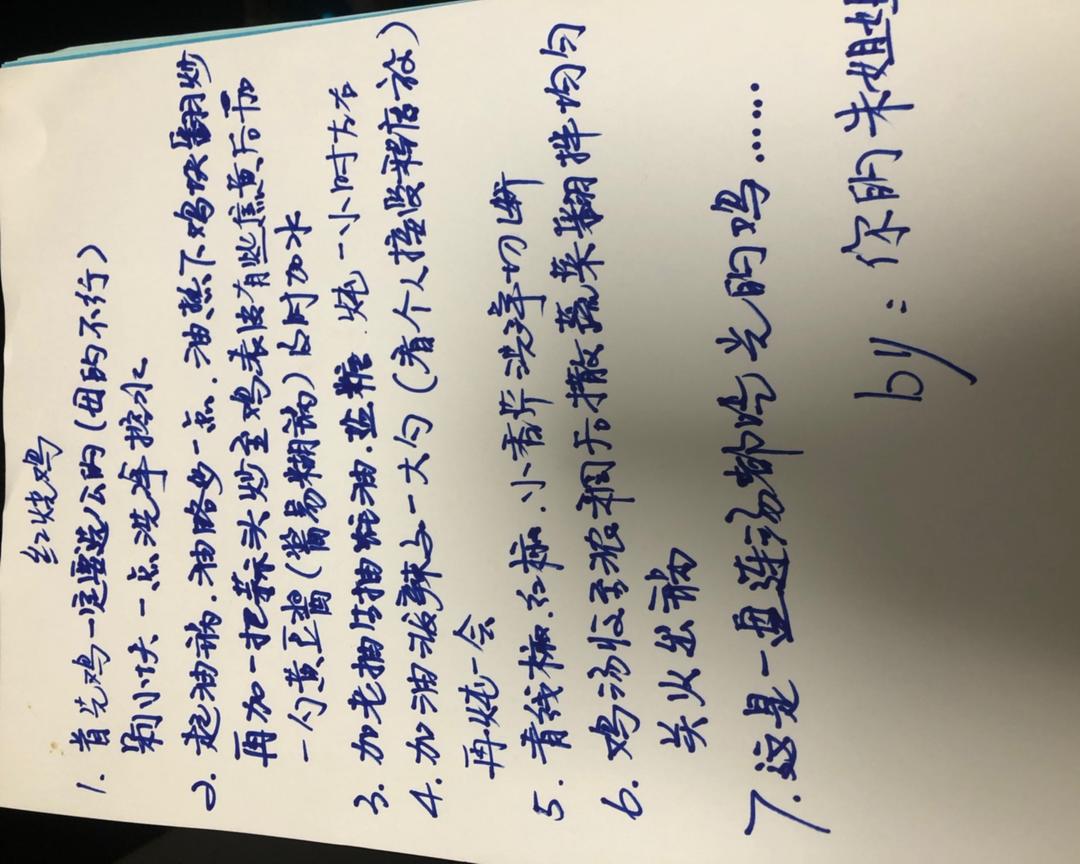 红烧鸡
1. 首先鸡一定要选公的(母的不行)
剁小块一点洗净控水
2. 起油锅.油略多一点.油热下鸡块翻炒
再加一把蒜头炒至鸡表皮有些焦黄后加
一勺黄豆酱(酱易糊锅)即时加水
3. 加老抽生抽蚝油.盐糖.炖一小时左右
4. 加油泼辣子一大勺(看个人接受程度放)
再炖一会
5. 青线椒.红椒.小香芹洗净切断
6. 鸡汤收至浓稠后撒蔬菜翻拌均匀
关火出锅
7. 这是一盘连汤都吃光的鸡......
by: 你的朱姐姐